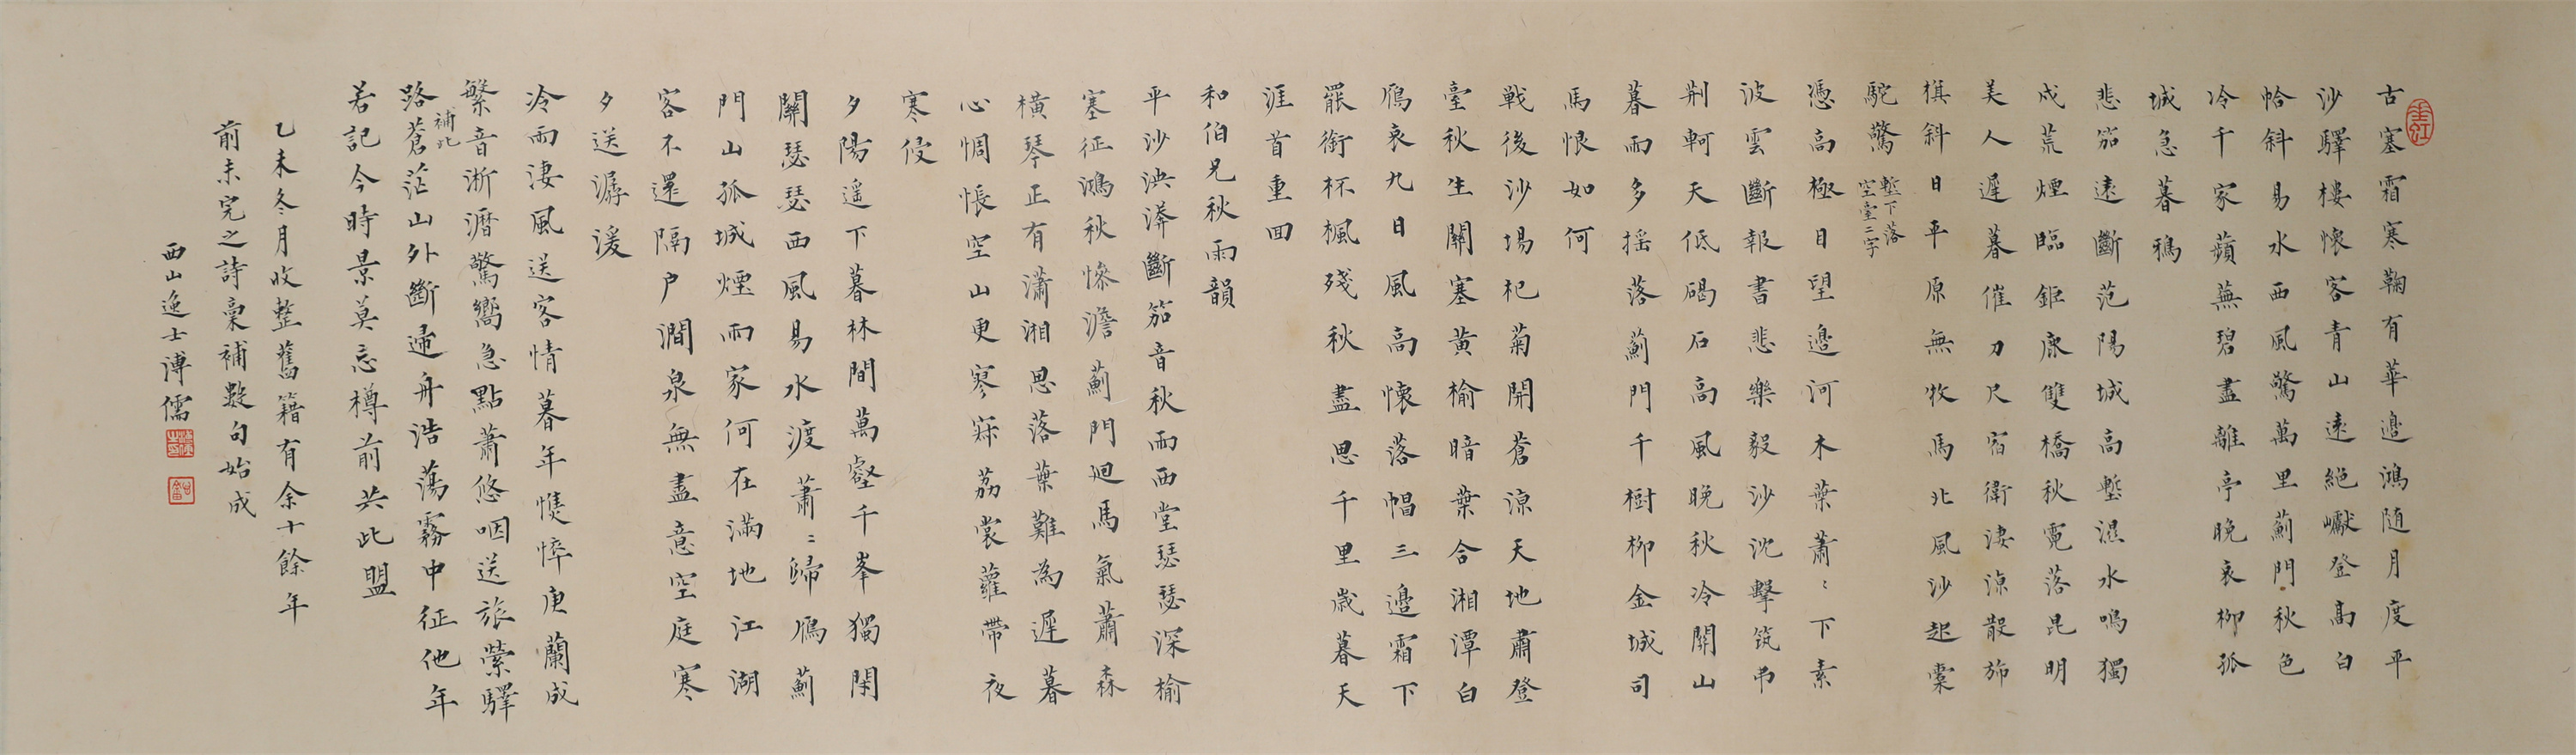 古塞霜寒鞠有華邉鴻随月度平
沙驛樓懷客青山遠絕巘登高白
帢斜易水西風驚萬里薊門秋色
冷千家蘋蕪碧盡離亭晚衰柳孤
城急暮鴉
悲笳遠斷范陽城高塹濕水鳴獨
戍荒煙臨鉅鹿雙橋秋霓落昆明
美人遲暮催刀尺宿衛淒涼散斾
旗斜日平原無牧馬北風沙起橐
駝驚
塹下落
空壼二字
憑高極目望邉河木葉蕭〻下素
波雲斷報書悲樂毅沙沈擊筑弔
荆軻天低碣石高風晚秋冷關山
暮雨多摇落薊門千樹柳金城司
馬恨如何
戰後沙場杞菊開蒼涼天地肅登
臺秋生關塞黄榆暗葉合湘潭白
鴈哀九日風高懷落帽三邉霜下
罷銜杯楓殘秋盡思千里歲暮天
涯首重回
和伯兄秋雨韻
平沙泱漭斷笳音秋雨西堂瑟瑟深榆
塞征鴻秋慘澹薊門廻馬氣蕭森
橫琴正有瀟湘思落葉難為遲暮
心惆悵空山更寥寂荔裳蘿帶夜
寒侵
夕陽遥下暮林間萬壑千峯獨閑
關瑟瑟西風易水渡蕭〻歸鴈薊
門山孤城煙雨家何在滿地江湖
客不還隔户澗泉無盡意空庭寒
夕送潺湲
冷雨淒風送客情暮年憔悴庾蘭成
繁音淅瀝驚嚮急點蕭悠咽送旅縈驛
路蒼茫山外斷遥舟浩蕩霧中征他年
補此
若記今時景莫忘樽前共此盟
乙未冬月收整舊籍有余十餘年
前未完之詩稾補數句始成
西山逸士溥儒